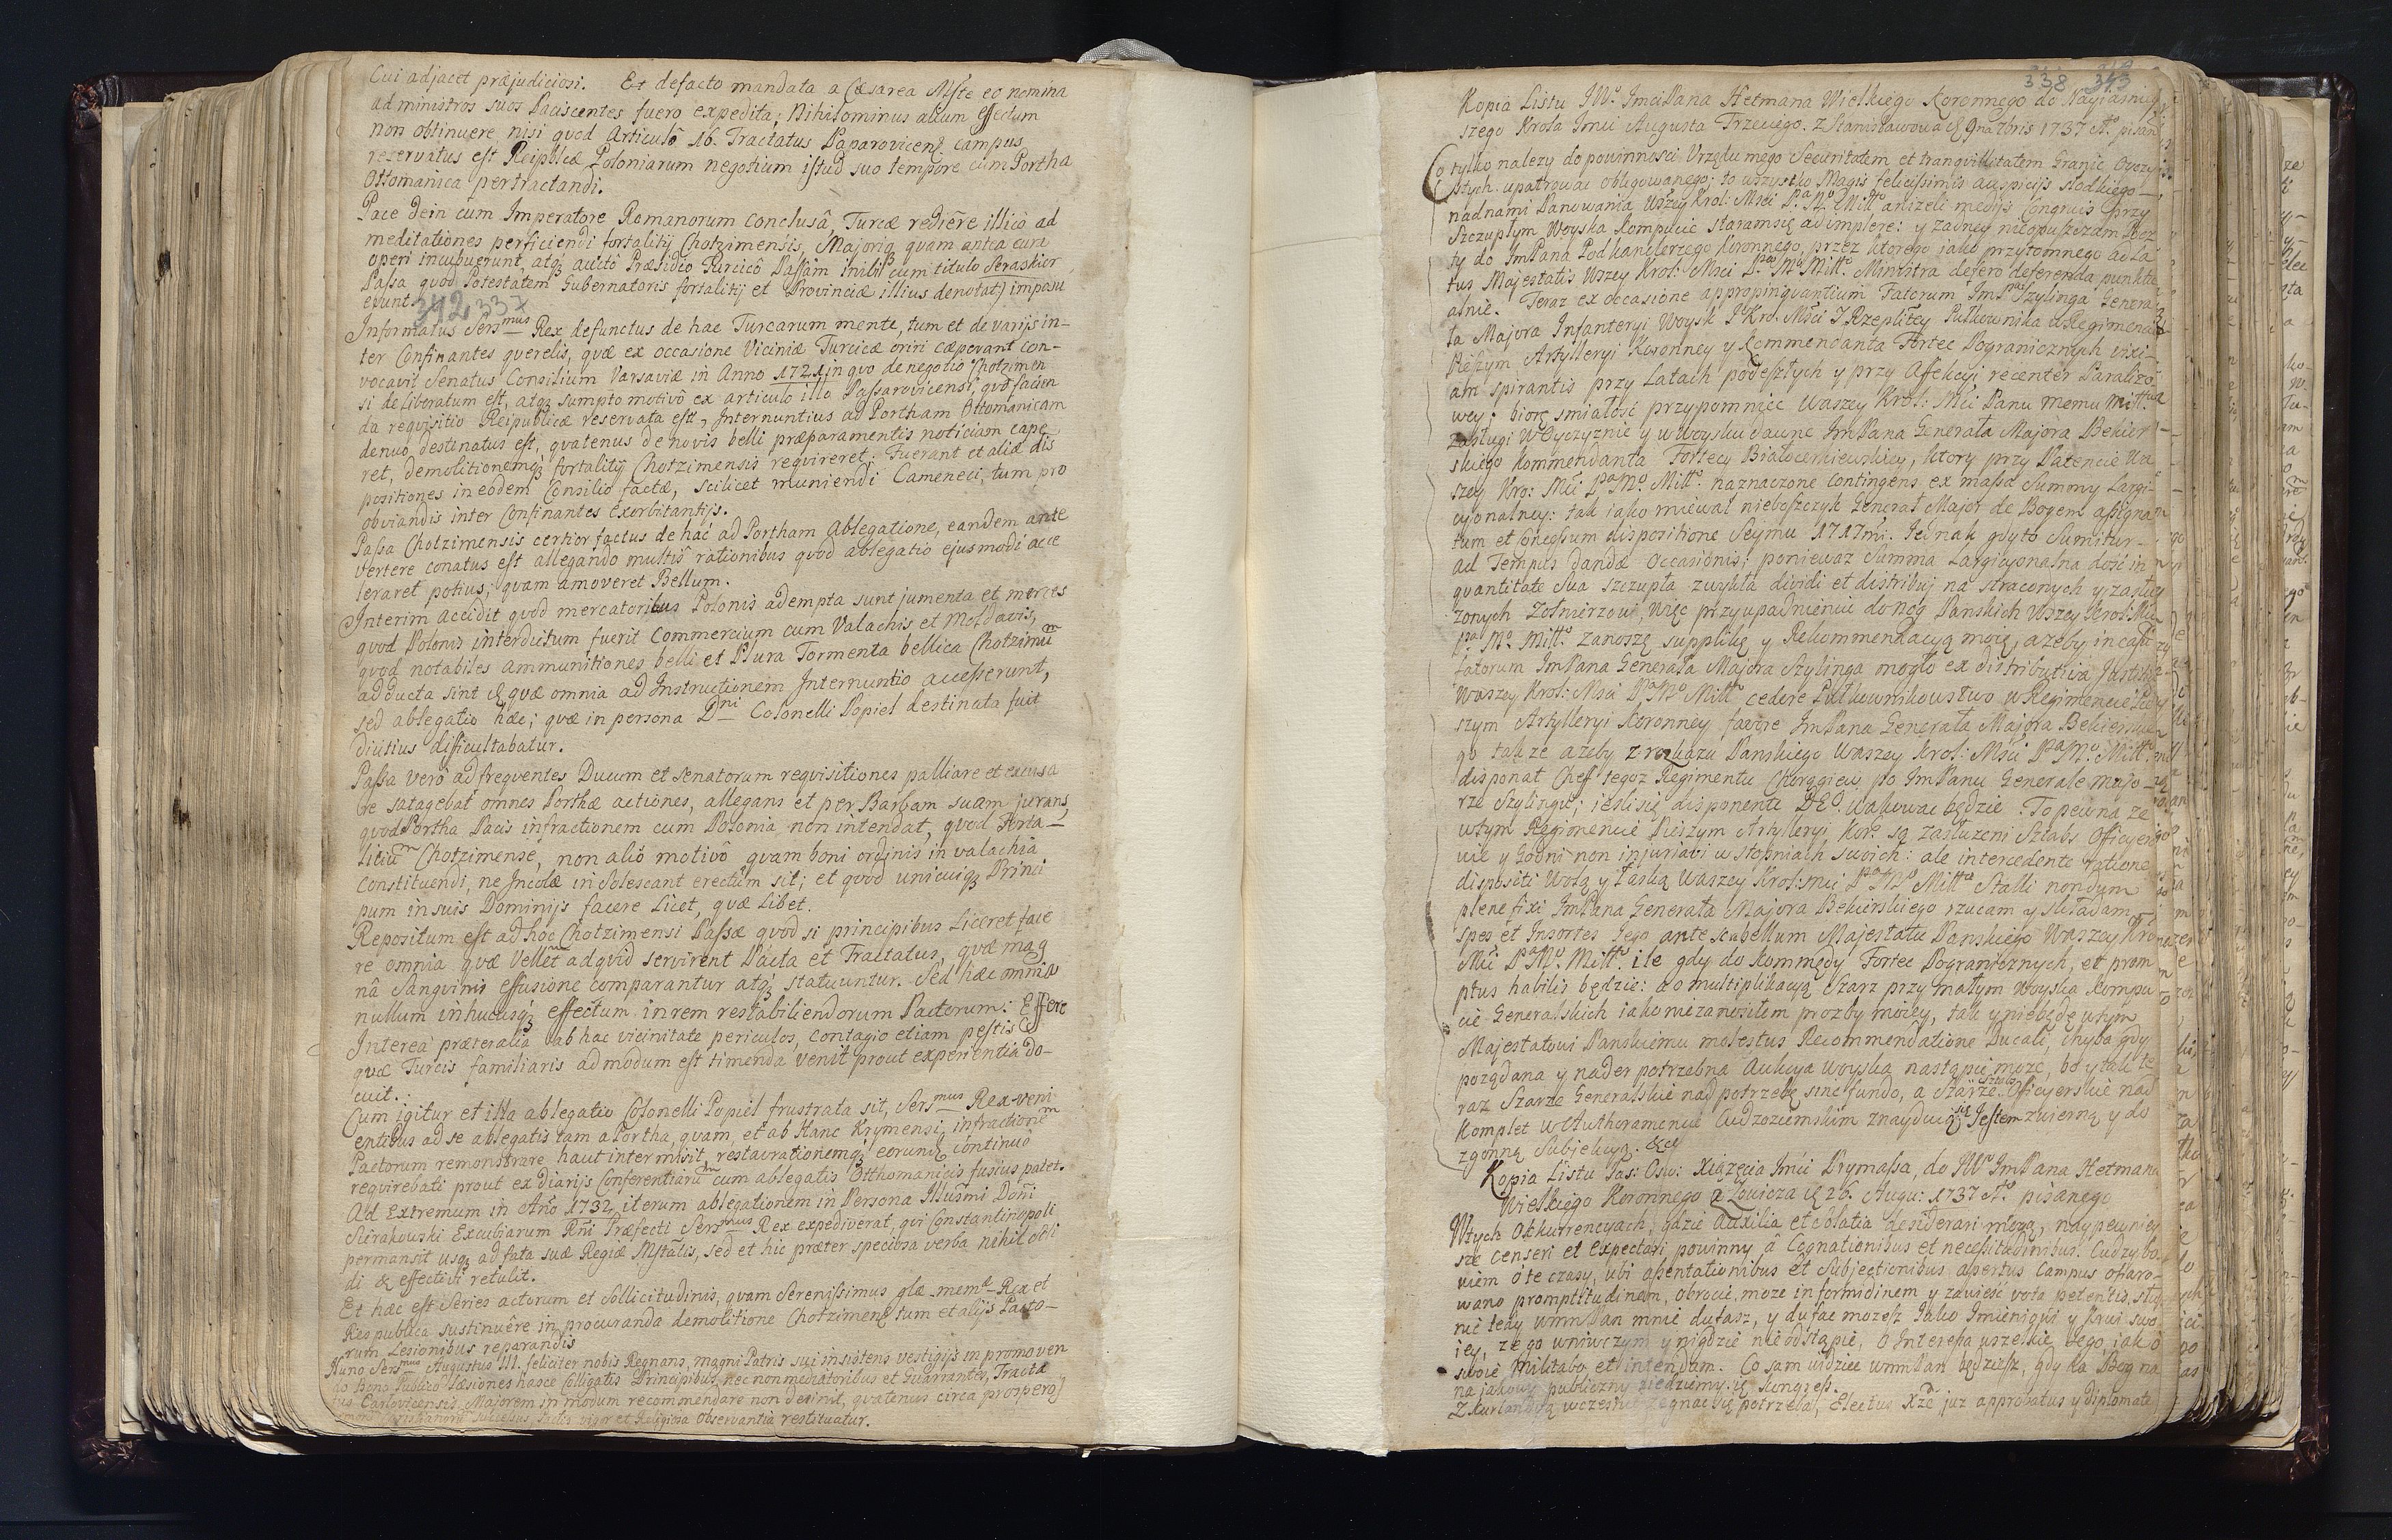 Cui adjacet præjudiciosi. Et defacto mandata a Cæsarea Mſte eo nomine
ad ministros suos Paciscentes fuero expedita; Nihilominus alium effectum
non obtinuere nisi quod Articulô 16. Tractatus Paparovicens. campus
reservatus est Reipblcæ Poloniarum negotium istud suo tempore cum Portha
Ottomanica pertractandi.
Pace dein cum Imperatore Romanorum conclusâ, Turcæ rediêre illicò ad
meditationes perficiendi fortalitij Chotzimensis, Majoriq; quam antea cura
operi incubuerunt, atq; auctô Præsidiô Turcicô Passam inibi cum titulo Seraskier
Passa quod Potestatem Gubernatoris fortalitij et Provinciæ illius denotat) imposu
erunt.
342 337
Informatus Sers mus Rex defunctus de hac Turcarum mente, tum et de varijs in-
ter Confinantes querelis, quæ ex occasione Viciniæ Turcicæ oriri cæperant con-
vocavit Senatus Consilium Varsaviæ in Anno 1721 in quo de negotio Chotzimen
si deliberatum est, atq; sumpto motivô ex articulo illo Passarovicensi, quô facien
da requisitio Reipublicæ reservata est, Internuntius ad Portham Ottomanicam
denuo destinatus est, quatenus de novis belli præparamentis noticiam cape
ret, demolitionemq; fortalitij Chotzimensis requireret; Fuerant et aliæ dis
positiones in eodem Consilio factæ, scilicet muniendi Cameneci, tum pro
obviandis inter Confinantes exorbitantijs.
Passa Chotzimensis certior factus de hâc ad Portham Ablegatione, eandem ante
vertere conatus est allegando multis rationibus quod ablegatio ejusmodi acce
leraret potius, quam amoveret Bellum.
Interim accidit quod mercatoribus Polonis adempta sunt jumenta et merces
quod Polonis interdictum fuerit Commercium cum Valachis et Moldavis,
quod notabiles ammunitiones belli et Plura Tormenta bellica Chotzimum
adducta sint & quæ omnia ad Instructionem Internuntio accesserunt,
sed ablegatio hæc; quæ in persona Dni Colonelli Popiel destinata fuit
diutius difficultabatur.
Passa verò ad frequentes Ducum et Senatorum requisitiones palliare et excusa
re satagebat omnes Porthæ actiones, allegans et per Barbam suam jurans,
quod Portha Pacis infractionem cum Polonia non intendat, quod Forta-
litium Chotzimense, non aliô motivô quam boni ordinis in valachia
constituendi, ne Incolæ insolescant erectum sit; et quod unicuiq; Princi
pum in suis Dominijs facere Licet, quæ Libet.
Repositum est ad hoc Chotzimensi Passæ quod si principibus Liceret face
re omnia quæ Vellent ad quid servirent Pacta et Tractatus, quæ mag
nâ Sangvinis effusione comparantur atq; statuuntur. Sed hæc omnia
nullum inhucusq; effectum in rem restabiliendorum Pactorum:
Interea præter alia ab hac vicinitate periculos, contagio etiam pestis
quæ Turcis familiaris admodum est timenda venit prout experientia do-
cuit.
Cum igitur et illa ablegatio Colonelli Popiel frustrata sit, Sers mus Rex veni
entibus ad se ablegatis tam a Portha, quam, et ab Hanc Krymensi, infractionem
Pactorum remonstrare haut intermisit, restaurationemq; eorund continuô
requirebati prout ex diarijs Conferentiarum cum ablegatis Otthomanicis fusius patet.
Ad Extremum in Año 1732 iterum ablegationem in Persona Illusmi Doñi
Sierakowski Excubiarum Rñi Præfecti Sers mus Rex expediverat, qui Constantinopoli
permansit usq; ad fata suæ Regiæ Mſtatis, sed et hic præter speciosa verba nihil soli
di & effectivi retulit.
Et hæc est Series actorum et Sollicitudinis, quam Serenissimus glæ mem Rex et
Respublica sustinuêre in procuranda demolitione Chotzimens tum et alijs Pacto-
rum Lesionibus reparandis
Nunc Sers mus Augustus III. feliciter nobis Regnans, magni Patris sui insistens vestigijs in promoven
do Bono Publico læsiones hasce Colligatis Principibus, nec non mediatoribus et Guarrantes, Tracta
tus Carlovicensis, Majorem in modum recommendare non desinit, quatenus circa prosperos
successus, Pactis vigor et Religiosa observantia restituatur.
338 343
Kopia Listu JWo ImciPana Hetmana Wielkiego Koronnego do Nayiaśniey
szego Krola Imci Augusta Trzeciego. Z Stanisławowa d 9na 7bris 1737 Ao pisan
Co tylko nalezy do powinnosci Vrzędu mego Securitatem et tranqvillitatem Granic Oyczy
stych. upatrowac obligowanego; to wszystko Magis felicissimis auspicijs słodkiego
nadnami Panowania Wszey Krol: Msci Pa Mo Mitto anizeli medijs Congruis przy
Szczupłym Woyska Kompucie staramsię adimplere: y zadney nieopuszczam Pocz
ty do ImPana Podkanclerzego Koronnego, przez ktorego iako przytomnego ad La
tus Majestatis Wszey Krol: Msci Pa Mo Mitto. Ministra defero deferenda punktu
alnie. Teraz ex occasione appropinquantium Fatorum ImPna Szylinga Genera
ła Majora Infanteryi Woysk J Kro: Msci J Rzeplitey Pułkownika u Regimenu
Pieszym Artylleryi Koronney y Kommendanta Fortec Pogranicznych vixi
am spirantis przy Latach podeszłych y przy Affekcyi recenter Paralizo
wey; biorę smiałość przypomniec Waszey Krol: Mci Panu memu Mitt
zasługi W Oyczyznie y w Woysku dawne ImPana Generała Majora Bekier
skiego Kommendanta Fortecy Białocerkiewskiey, ktory przy Patencie Wa
szey Kro: Mci Pa Mo Mitto. naznaczone Contingens ex massa Summy Largi
cyonalney: tak iako miewał nieboszczyk Generał Major de Bogem assigna
tum et Congssum dispositione Seymu 1717mi. Jednak gdyto Sumitur
ad Tempus dandæ Occasionis; poniewaz Summa Largicyonalna dość in
quantitate sua szczupła zwykła dividi et distribuj na straconych y zasłu
zonych Zołnierzow, Więc przyupadnieniu donog Panskich Wszey Krol: Mci
Pa Mo Mitto zanoszę supplikę y Rekommendacyą moię, azeby in casu
fatorum ImPana Generała Majora Szylinga mogło ex distributiva Justitia
Waszey Krol: Msci Pa Mo Mitto cedere Pułkownikowstwo w Regimencie Pie
szym Artylleryi Koronney favore ImPana Generała Majora Bekierskie
go takze azeby z rozkazu Panskiego Waszey Krol: Msci Pa Mo Mitto
disponat Cheff tegoz Regimentu Chorągiew po ImPanu Generale Majo
rze Szylingu; iesli się disponente DEO wakowac będzie. To pewna ze
wtym Regimencie Pieszym Artylleryi Kor: są zasłuzeni Sztabs Officyero
wie y Godni non injuriari w stopniach swoich: ale intercedente ratione
dispositi Wolą y Łaską Waszey Krol: mci Pa Mo Mitto Stalli nondum
plene fixi ImPana Generała Majora Bekierskiego rzucam y składam
spes et Insortes Jego ante scabellum Majestatu Panskiego Waszey Kro
Mci Pa Mo Mitto. ile gdy do Kommędy Fortec Pogranicznych, et prom
ptus habilis będzie: a o multiplikacyą Szarz przy małym Woyska Kompu
cie Generalskich iako niezanosiłem prozby moiey, tak y niebędę wtym
Majestatowi Panskiemu molestus Recommendatione Ducali, chyba gdy
pozędana y nader potrzebna Aukcya Woyska nastąpic moze, bo y tak te
raz Szarze Generalskie nad potrzebę sine fundo, a Szarze Sztabs Officyerskie nad
Komplet w Authoramencie Cudzoziemskim znayduią się. Jestem zwierną y do
zgonną Subjekcyą. &c
Kopia Listu Jas: Osw: Xiązęcia Imci Prymassa, do JWo ImPana Hetmana
Wielkiego Koronnego z Łowicza d 26. Augu: 1737 Ao pisanego
Wtych Okkurrencyach, gdzie Auxilia et Solatia desiderari mogą, naypewniey
sze censeri et expectari powinny â Cognationibus et necessitudinibus. Cudzy bo
wiem o te czasy, ubi assentationibus et Subjectionibus apertus Campus ofiaro
wano promptitudinem, obrocic moze in formidinem y zawieść vota petentis,
nie tedy WmmPan mnie dufasz, y dufac mozesz Jako Imienięmi y Krwi swo
iey, ze go wniwczym y nigdzie nieodstąpię, o Interessa wszelkie Jego, iako
swoie Militabo et intendam. Co sam widziec WmmPan będziesz, gdy da Bog na
na jakowy publiczny ziedziemy się Kongress.
Z Kurlandyą wczesnie zegnac się potrzeba, Electus Xże juz approbatus y diplomate